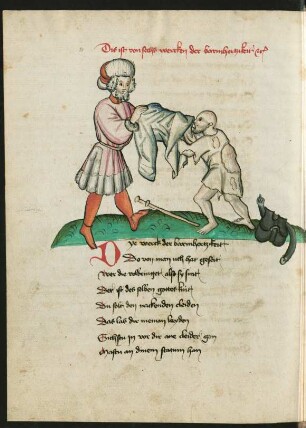 Dis ist von sechs wercken der barmhertzikeit
Dye werck der barmhertzikeit
Do von man uch hat geseit
Wer die volbringet also sy sint
Der ist des selben gottes kint
Du solt den nackenden cleiden
Das las dir nieman leyden
Sichstu in vor dir ane cleider gan